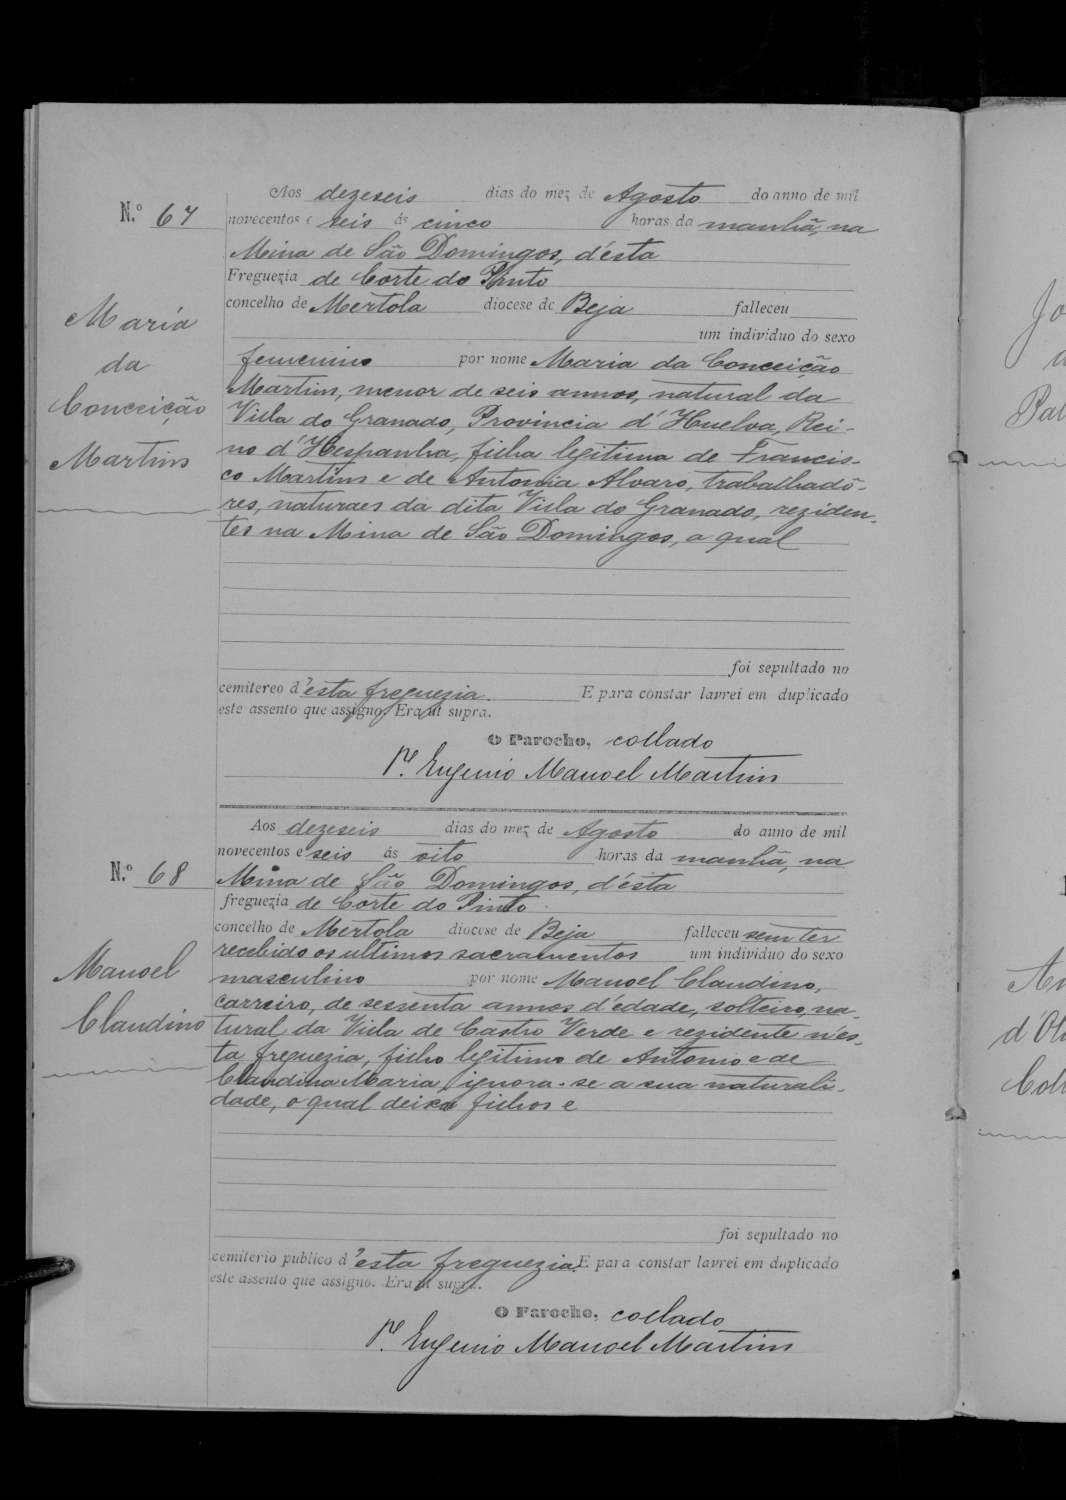 Aos dezeseis dias do mez de Agosto do anno de mil
N.º 67
novecentos e seis ás cinco horas da manhã, na
Mina de São Domingos, d'ésta
Freguezia de Corte do Pinto
concelho de Mertola diocese de Beja falleceu
um individuo do sexo
femenino por nome Maria da Conceição
Maria
da
Conceição
Martins
Martins, menor de seis annos, natural da
Villa do Granado, Provincia d'Huelva, Rei-
no d'Hespanha, filha legitima de Francis-
co Martins e de Antonia Alvaro, trabalhadô-
res, naturaes da dita Villa do Granado, reziden-
tes na Mina de São Domingos, a qual
foi sepultado no
cemitereo d'esta freguezia. E para constar lavrei em duplicado
este assento que assigno. Era ut supra.
O Parocho, collado
P.e Eugenio Manoel Martins
Aos dezeseis dias do mez de Agosto do anno de mil
novecentos e seis ás oito horas da manhã, na
N.º 68
Mina de São Domingos, d'ésta
freguezia de Corte do Pinto
concelho de Mertola diocese de Beja falleceu sem ter
recebido os ultimos sacramentos um individuo do sexo
masculino por nome Manoel Claudino,
Manoel
Claudino
carreiro, de sessenta annos d'edade, solteiro, na-
tural da Villa de Castro Verde e rezidente n'és-
ta freguezia, filho legitimo de Antonio e de
Claudina Maria, ignora-se a sua naturali-
dade, o qual deixa filhos e
foi sepultado no
cemiterio publico d'esta freguezia. E para constar lavrei em duplicado
este assento que assigno. Era ut supra.
O Parocho, collado
P.e Eugenio Manoel Martins
Jo
Pal
An
d'Oli